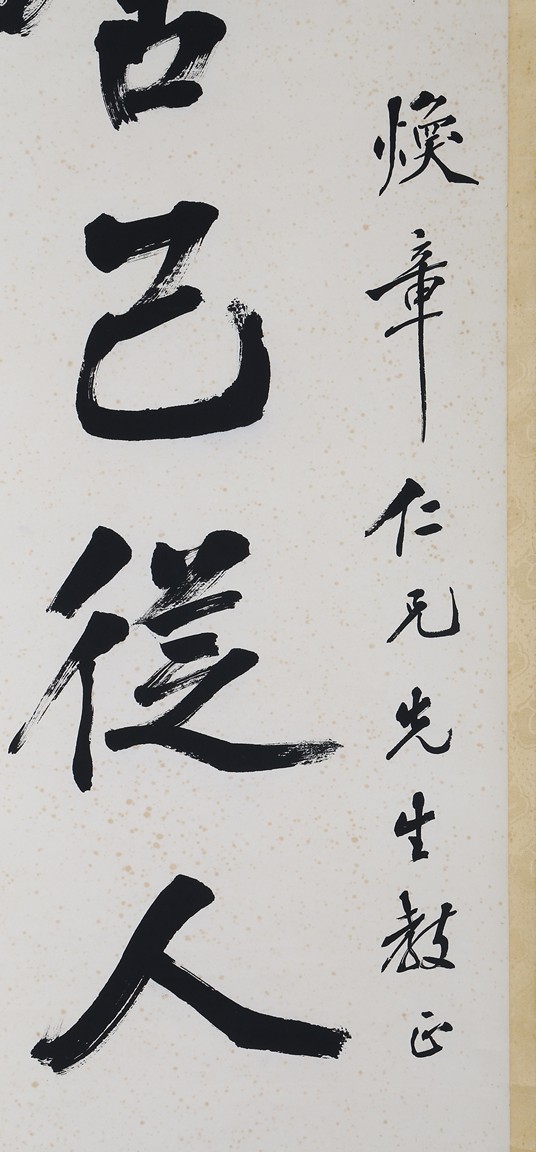 煥章仁兄先生教正
己從人